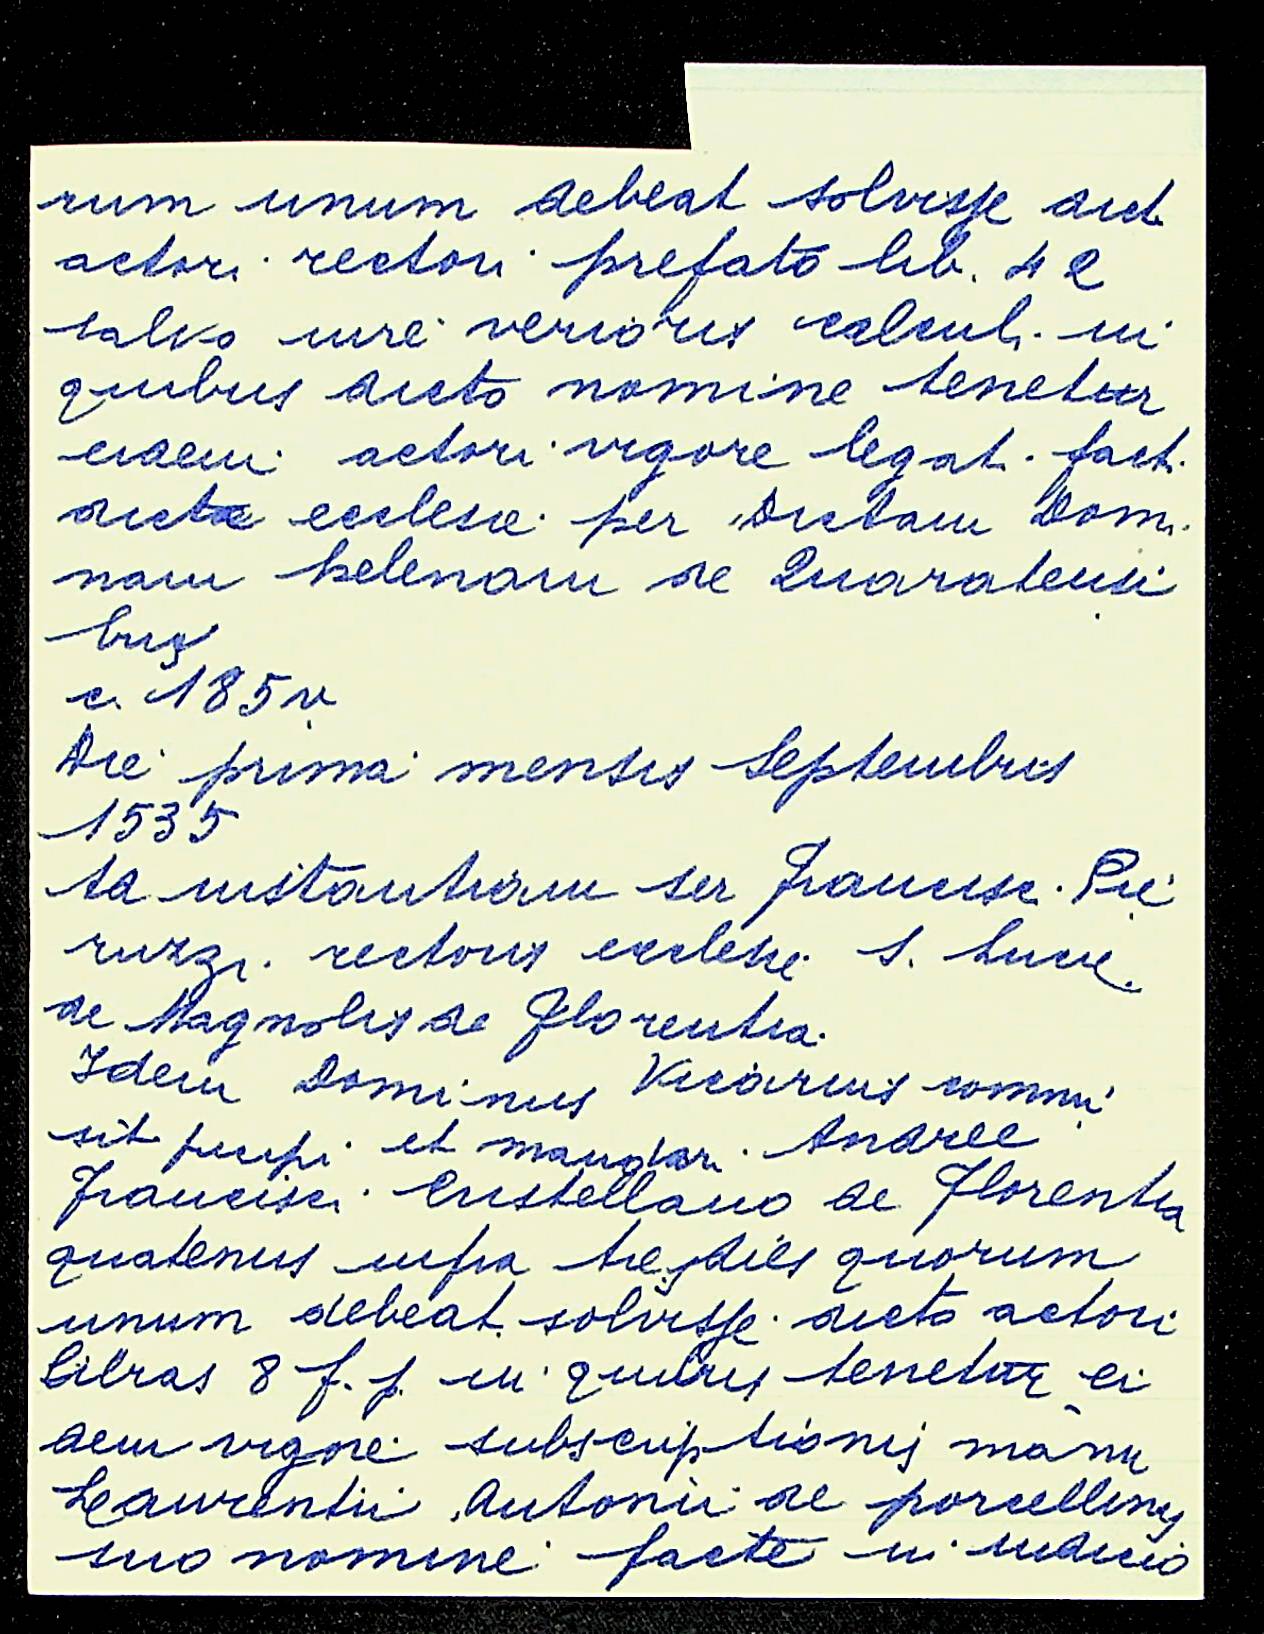 rum unum debeat solvisse dict.
actori rectori prefato lib. 42
salvo iure verioris calculi in
quibus dicto nomine tenetur
eidem actori vigore legati facti
dicte ecclesie per dictam Domi
nam Helenam de Quaratensi
bus
c. 185 v.
Die prima mensis Septembris
1535
Ad instantiam ser Francisci Pie
ruzzi rectoris ecclesie S. Lucie
de Magnolis de Florentia.
Idem Dominus Vicarius commi
sit precipi et mandari Andree
Francisci Castellano de Florentia
quatenus infra tres dies quorum
unum debeat solvisse dicto actori
libras 8 f. p. in quibus tenetur ei
dem vigore subscriptionis manu
Laurentii Antonii de porcellinis
suo nomine facte in iudicio